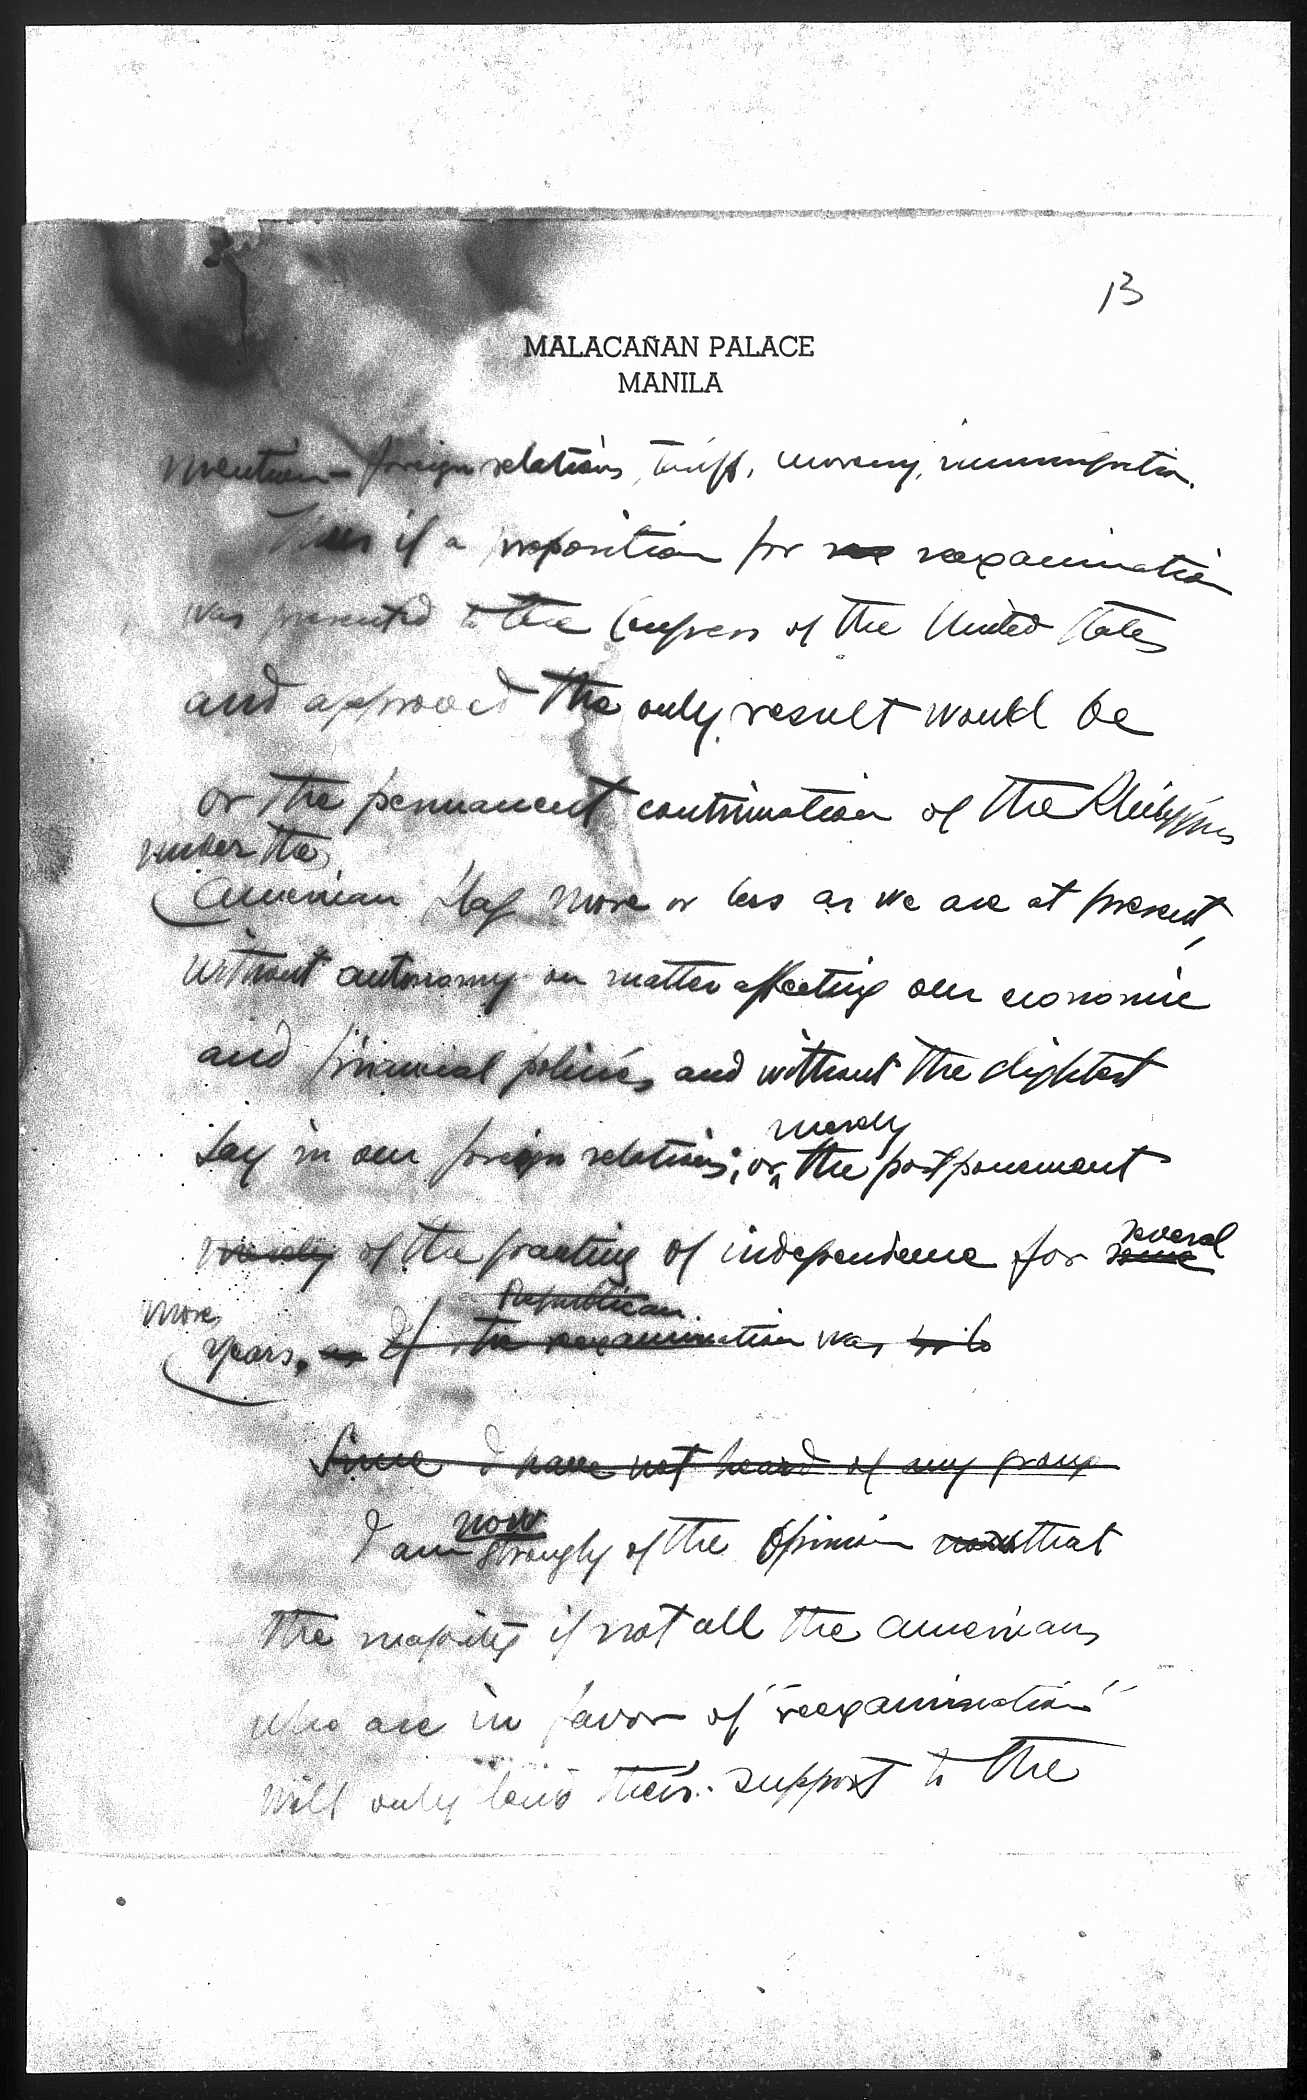 13
MALACAÑAN PALACE
MANILA
mention - foreign relations, tariff, currency, immigration.
Thus if a proposition for reexamination
was presented to the Congress of the United States
and approved the only result would be
or the permanent continuation of the Philippines
under the
American flag more or less as we are at present,
without autonomy on matters affecting our economic
and financial policies and without the slightest
merely
say in our foreign relations; or the postponement
several
merely of the granting of independence for some
Republican
more
years. If the reexamination was
Since I have not heard of any group
now
I am strongly of the opinion that
the majority if not all the Americans
who are in favor of "reexamination"
will only lend their support to the